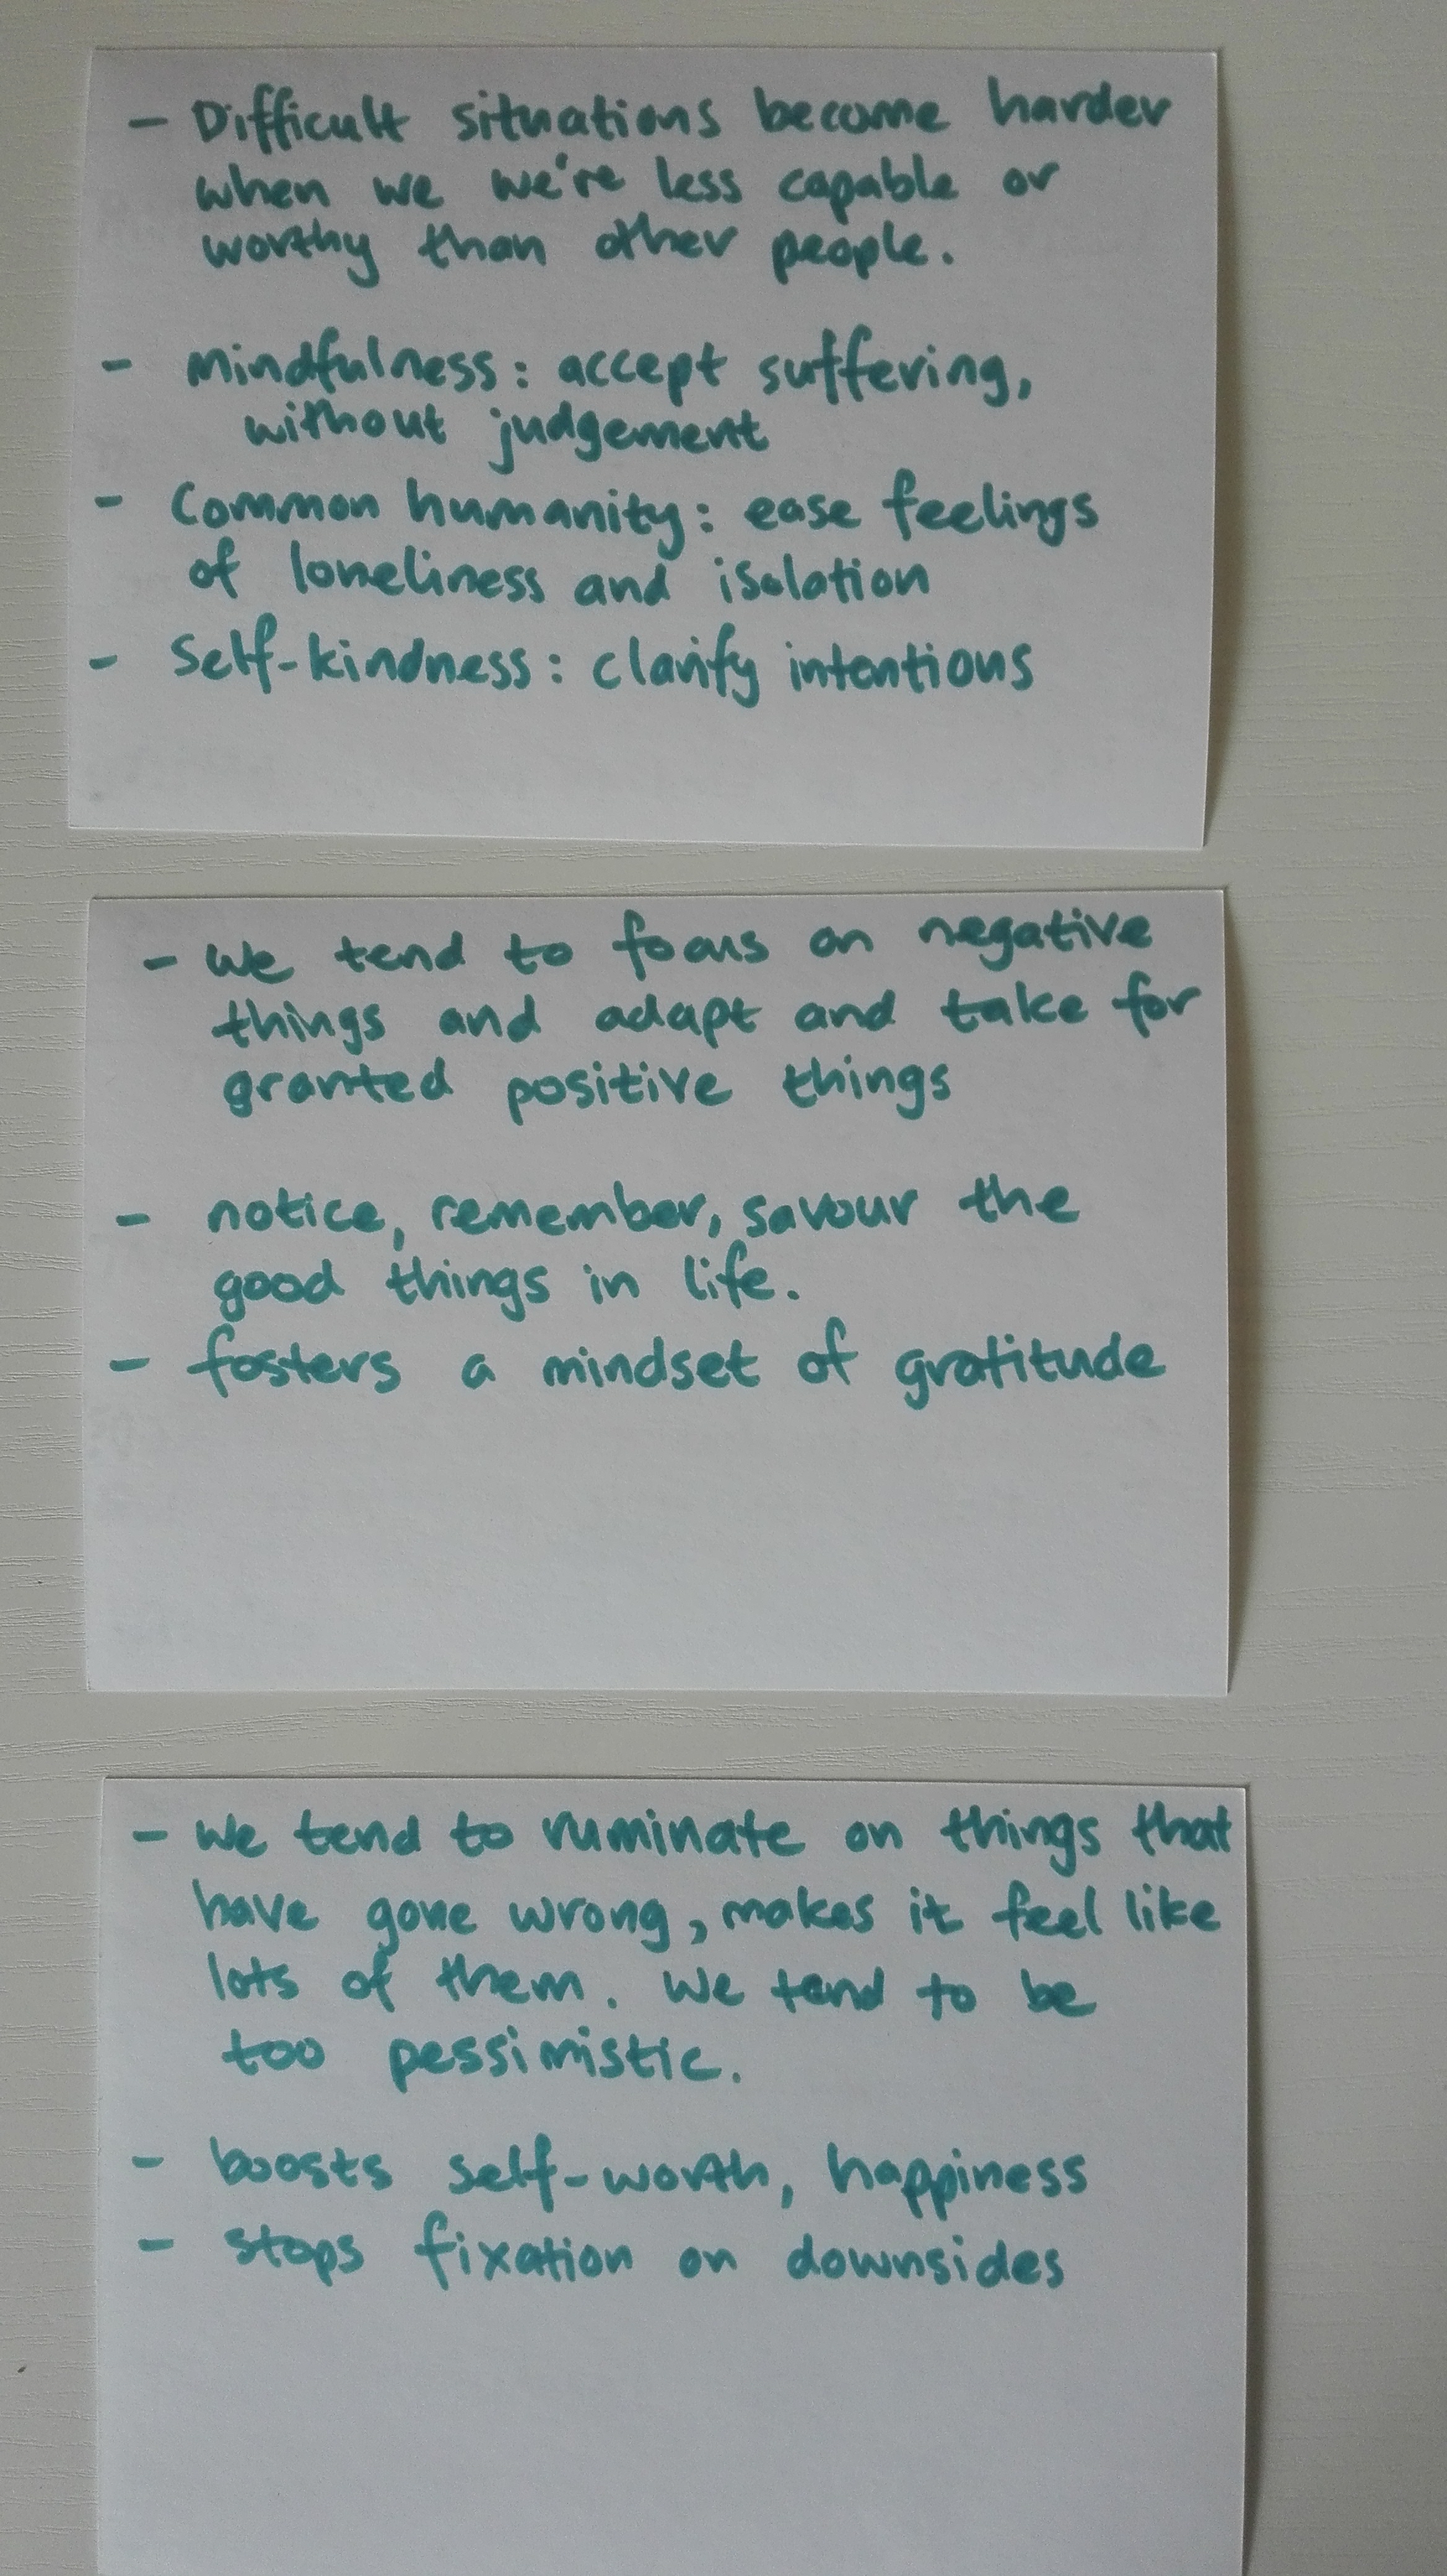 - Difficult situations become harder
when we we're less capable or
worthy than other people.
- Mindfulness: accept suffering,
without judgement
- Common humanity: ease feelings
of loneliness and isolation
- Self-kindness: clarify intentions
- We tend to focus on negative
things and adapt and take for
granted positive things
- notice, remember, savour the
good things in life.
- fosters a mindset of gratitude
- We tend to ruminate on things that
have gone wrong, makes it feel like
lots of them. We tend to be
too pessimistic.
- boosts self-worth, happiness
- stops fixation on downsides